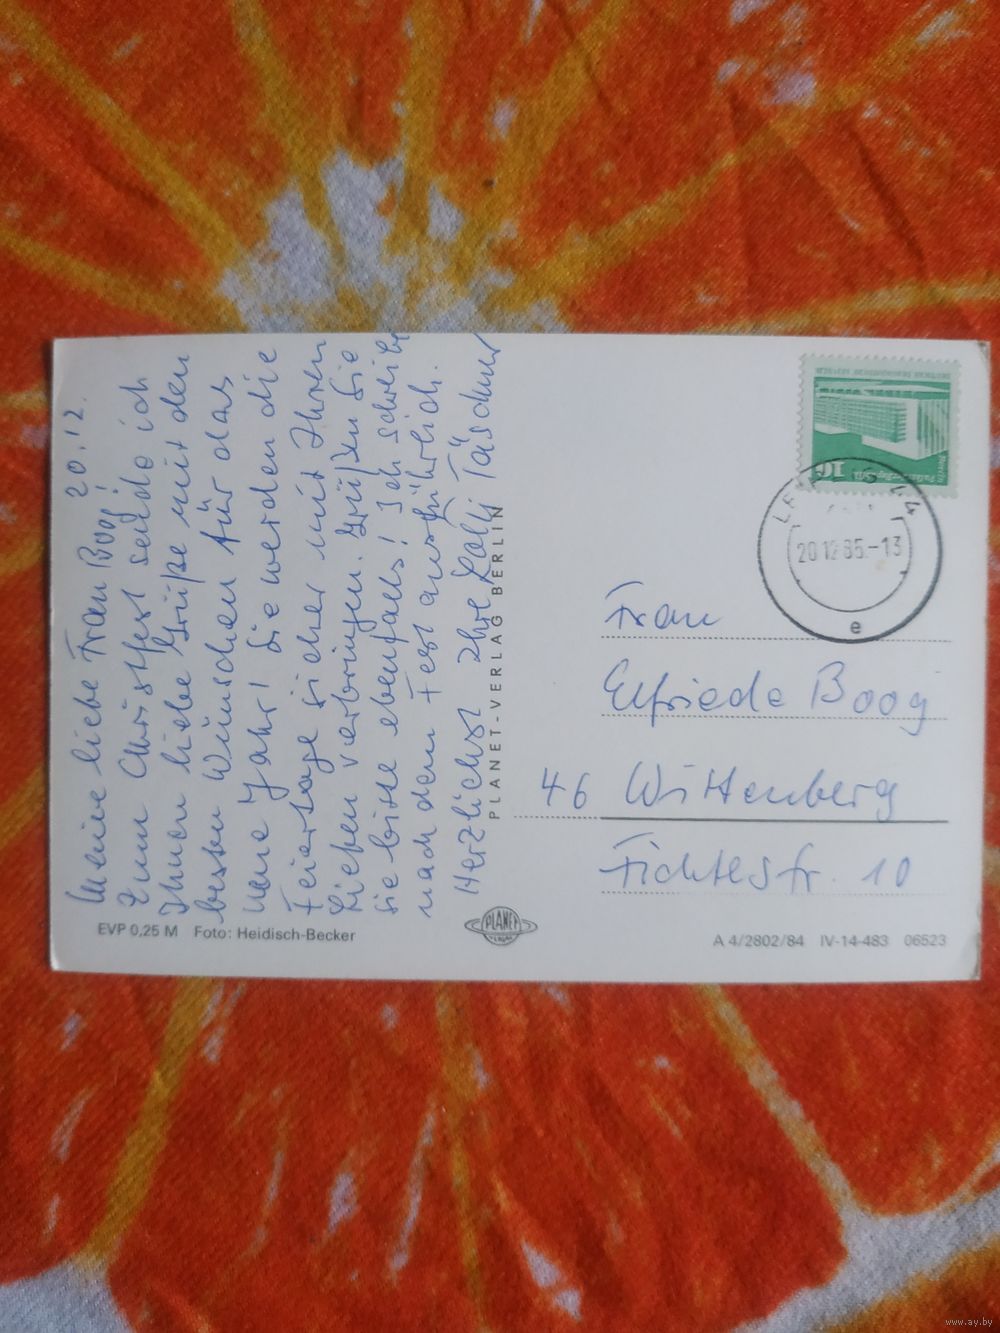 20.12.
Meine liebe Frau Boog!
Zum Christfest sende ich
Ihnen liebe Grüße mit den
besten Wünschen für das
neue Jahr! Sie werden die
Feiertage sicher mit Ihren
Lieben verbringen. Grüßen Sie
sie bitte ebenfalls! Ich schreibe
nach dem Fest ausführlich.
Herzlichst Ihre Lolly Täschner
PLANET-VERLAG BERLIN
10
20.12.85.-13
e
Frau
Elfriede Boog
46 Wittenberg
Fichtestr. 10
PLANET
EVP 0,25 M Foto: Heidisch-Becker
A 4/2802/84 IV-14-483 06523
www.ay.by